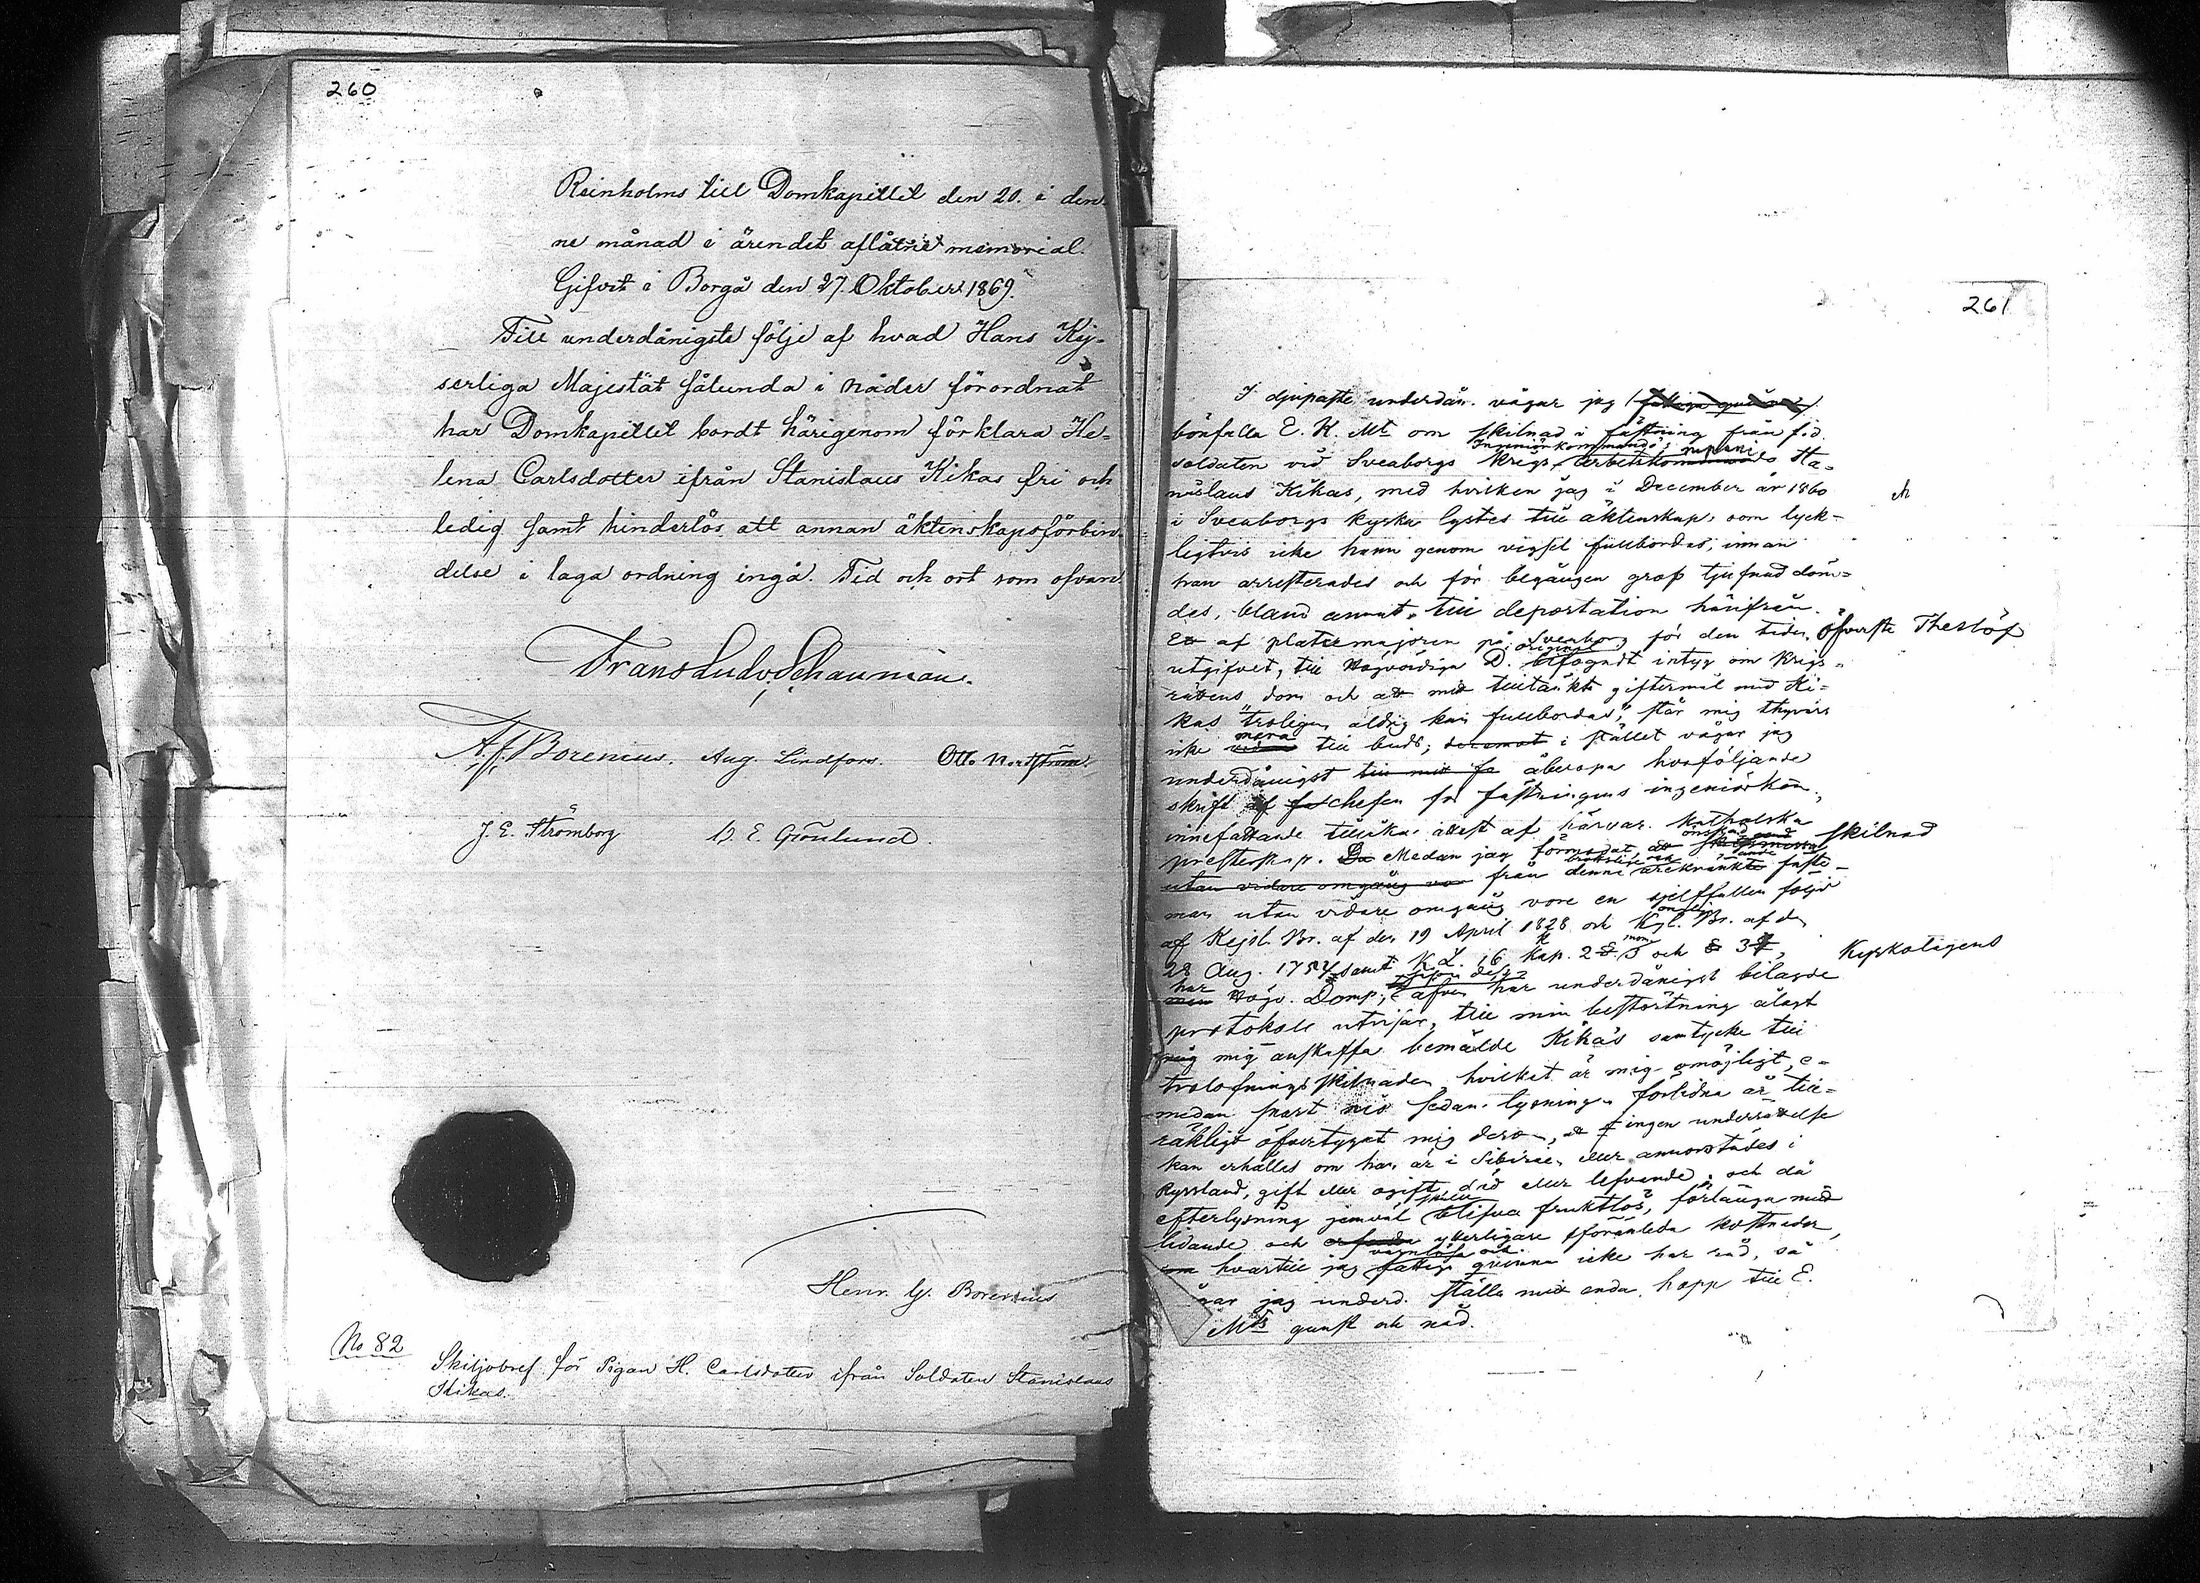 260
Reinholms till Domkapitlet den 20. i den-
ne månad i ärendet aflåtne memorial.
Gifvet i Borgå den 27. Oktober 1869.
Till underdånigste följe af hvad Hans Kej-
serliga Majestät sålunda i nåder förordnat
har Domkapitlet bordt härigenom förklara He-
lena Carlsdotter ifrån Stanislaus Kikas fri och
ledig samt hinderlös att annan äktenskapsförbin-
delse i laga ordning ingå. Tid och ort som ofvan
Frans Ludv. Schauman.
A. f. Borenius. Aug. Lindfors. Otto Nordström.
J. E. Strömborg E. Grönlund.
Henr. G. Borenius
No 82
Skiljobref för Pigan H. Carlsdotter ifrån Soldaten Stanislaus
Kikas.
261
I djupaste underdån. vågar jag
bönfalla E. K. Mt om skilnad i fästning från f.d.
Ingeniörkommando's
soldaten vid Sveaborgs Krigs arbetskommando Sta-
nislaus Kikas, med hvilken jag i December år 1860
i Sveaborgs kyrka lystes till äktenskap, som lyck-
ligtvis icke hann genom vigsel fullbordas, innan
han arresterades och för begången grof tjufnad döm-
des, bland annat, till deportation härifrån.
Ett af platsmajoren på Sveaborg för den tiden, öfverste Theslöf
utgifvet, till Högvördiga D. bifogadt intyg om Krigs-
rättens dom och att mitt tilltänkta giftermål med Ki-
kas "troligen aldrig kan fullbordas", står mig thyvärr
mera
icke till buds; i stället vågar jag
underdånigst till mitt åberopa hosföljande
skrift af chefen för fästningens ingeniörkom.,
innefattande tillika attest af härvar. katholska
önskad
presterskap. Medan jag förmodat, att skilnad
utan vidare omgång från denne ärekränkte fäste-
man utan vidare omgång vore en sjelffallen följd
af Kejsl. Br. af den 19 April 1828 och Kgl. Br. af den
28 Aug. 1754 samt K. L. 16 Kap. 2 och § 3, Kyrkolagens
har
Högv. Domk., äfven här underdånigst bilagde
protokoll utvisar, till min bestörtning ålagt
mig anskaffa bemälde Kikas samtycke till
trolofningsskilnaden, hvilket är mig omöjligt, e-
medan snart nio sedan lysningen förlidna år till-
räkligt öfvertygat mig derom, att ingen underrättelse
kan erhållas om han är i Sibirien eller annorstädes i
Ryssland, gift eller ogift, död eller lefvande; och då
skulle
efterlysning jemväl blifva fruktlös, förlänga mitt
lidande och ytterligare föranleda kostnader,
värnlösa och
hvartill jag fattiga qvinna icke har råd, så
jag underd. ställa mitt enda hopp till E.
Mts gunst och nåd.